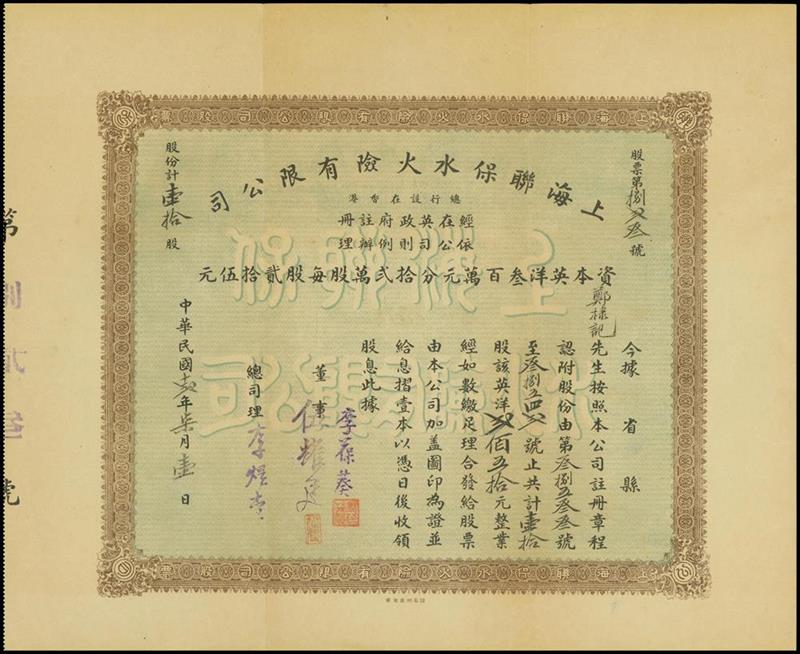 上海聯保水火險有限公司股票
上海聯保水火險有限公司
總行設在香港
經在英政府註冊
依公司則例辦理
資本英洋叁百萬元分拾弍萬股每股貳拾伍元
股票第捌貳叁號
今據 省 縣
鄭棣記先生按照本公司註冊章程
認附股份由第叁捌五叁叁號
至叁捌五四貳號止共計壹拾
股該英洋貳佰五拾元整業
經如數繳足理合發給股票
由本公司加盖圖印為證並
給息摺壹本以憑日後收領
股息此據
董事 李葆葵
伍耀庭
總司理 李煜堂
中華民國年柒月壹日
股份計壹拾股
上海聯保水火險有限公司股票